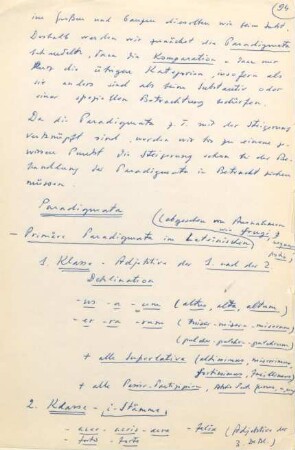 94
im Großen und Ganzen dieselben wie beim Subst.
Deshalb werden wir zunächst die Paradigmata
behandeln, dann die Komparation u. dann nur
kurz die übrigen Kategorien, insofern als
sie anders sind als beim Substantiv oder
einer speziellen Betrachtung bedürfen.
Da die Paradigmata z.T. mit der Steigerung
verknüpft sind, werden wir bis zu einem ge-
wissen Punkt die Steigerung schon in der Be-
handlung der Paradigmata in Betracht ziehen
müssen.
Paradigmata
(abgesehen von Ausnahmen
wie frugi
- Primäre Paradigmata im Lateinischen
1. Klasse - Adjektiva der 1. und der 2.
Deklination
- us - a - um (altus, alta, altum)
- er - ra - rum (miser - misera - miserum)
(pulcher - pulchra - pulchrum)
+ alle Superlative (altissimus, miserrimus,
fortissimus, facillimus)
+ alle Passiv-Partizipien,
2. Klasse - i-Stämme,
- acer - acris - acre - felix (Adjektiva der
- fortis - forte 3. Dekl.)